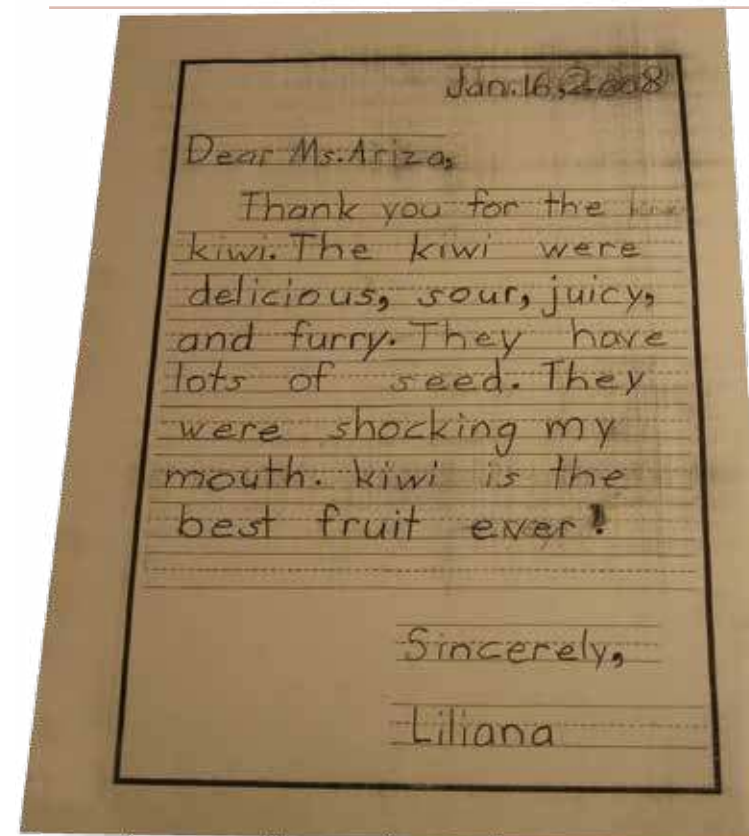 Jan. 16, 2008
Dear Ms. Ariza,
Thank you for the
kiwi. The kiwi were
delicious, sour, juicy,
and furry. They have
lots of seed. They
were shocking my
mouth. kiwi is the
best fruit ever!
Sincerely,
Liliana